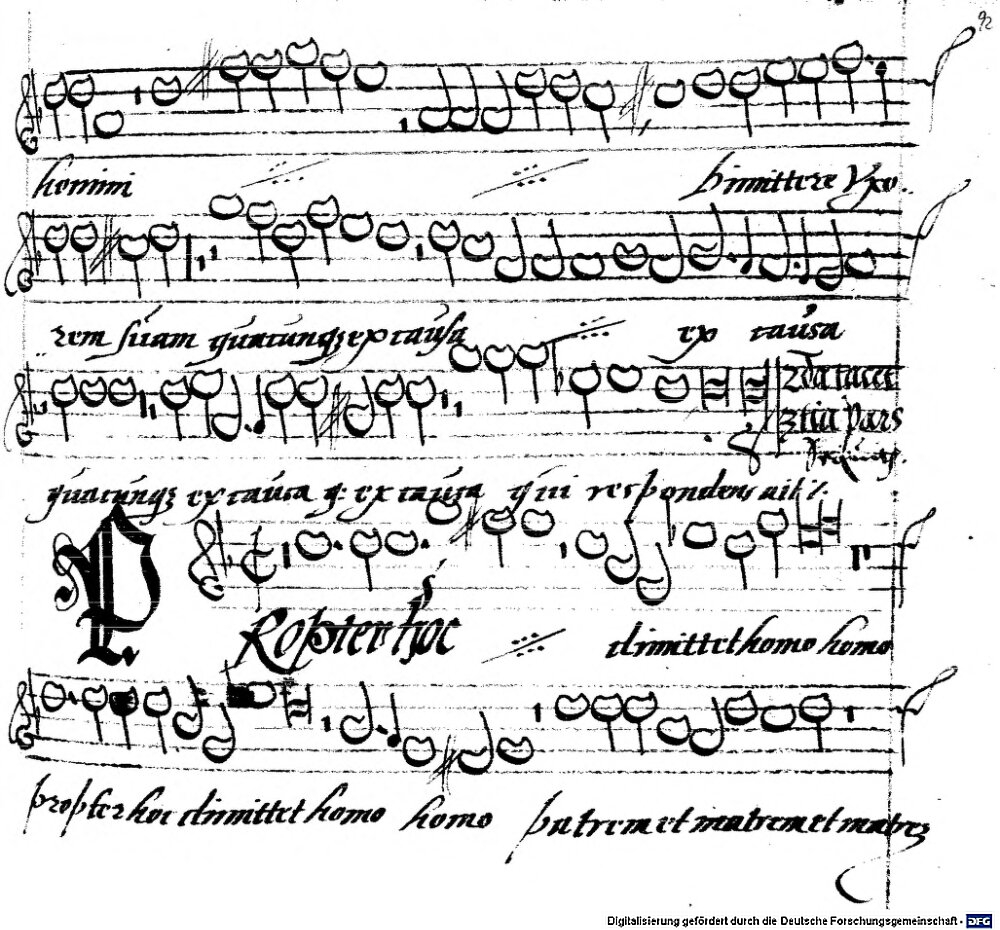 92
homini dimittere Uxo
rem suam quacunqz ex causa ex causa
2da tacet
3tia pars
quacunqz ex causa q: ex causa qui respondens ait
PRopter hoc dimittet homo homo
propter hoc dimittet homo homo patrem et matrem et matrez
Digitalisierung gefördert durch die Deutsche Forschungsgemeinschaft - DFG